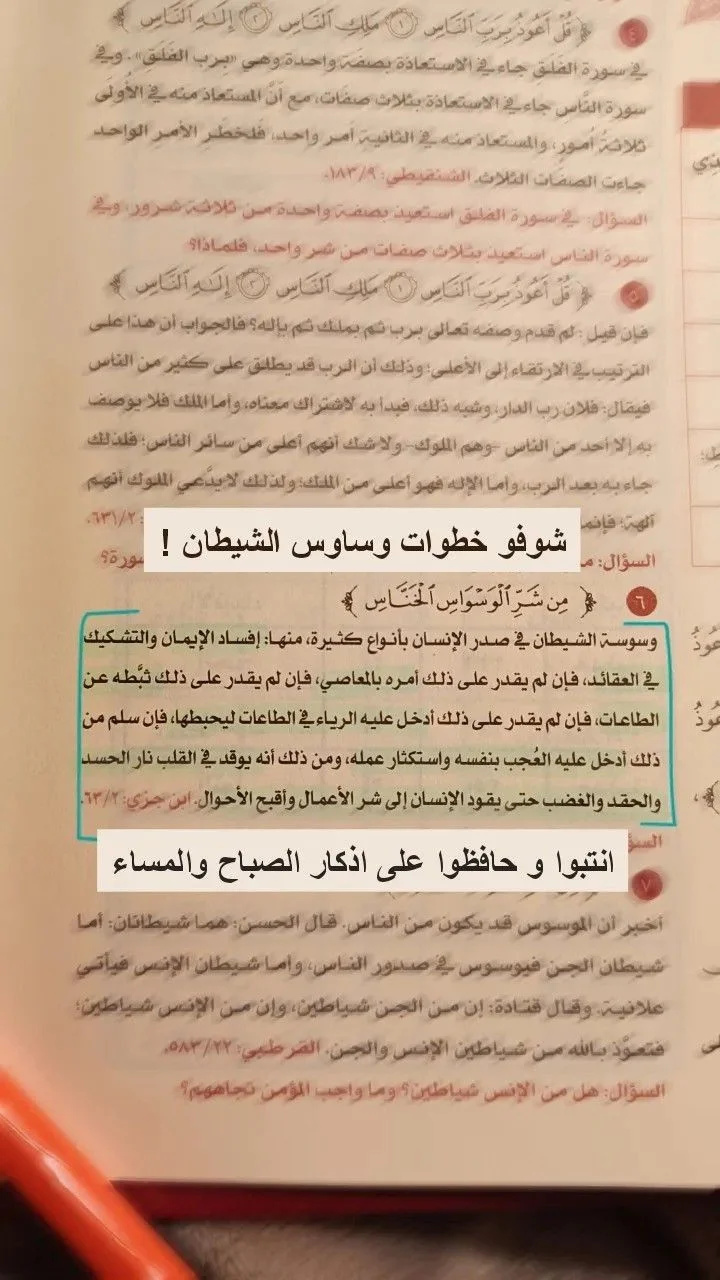 ﴿ قُلْ أَعُوذُ بِرَبِّ ٱلنَّاسِ ۝١ مَلِكِ ٱلنَّاسِ ۝٢ إِلَٰهِ ٱلنَّاسِ ﴾ ٤
في سورة الفلق جاء في الاستعاذة بصفة واحدة وهي «برب الفلق». وفي
سورة الناس جاء في الاستعاذة بثلاث صفات، مع أن المستعاذ منه في الأولى
ثلاثة أمور، والمستعاذ منه في الثانية أمر واحد، فلخطر الأمر الواحد
جاءت الصفات الثلاث. الشنقيطي: ١٨٣/٩.
السؤال: في سورة الفلق استعيذ بصفة واحدة من ثلاثة شرور، وفي
سورة الناس استعيذ بثلاث صفات من شر واحد، فلماذا؟
٥ ﴿ قُلْ أَعُوذُ بِرَبِّ ٱلنَّاسِ ۝١ مَلِكِ ٱلنَّاسِ ۝٢ إِلَٰهِ ٱلنَّاسِ ﴾
فإن قيل: لم قدم وصفه تعالى برب ثم بملك ثم بإله؟ فالجواب أن هذا على
الترتيب في الارتقاء إلى الأعلى؛ وذلك أن الرب قد يطلق على كثير من الناس
فيقال: فلان رب الدار، وشبه ذلك، فبدأ به لاشتراك معناه، وأما الملك فلا يوصف
به إلا أحد من الناس -وهم الملوك- ولا شك أنهم أعلى من سائر الناس؛ فلذلك
جاء به بعد الرب، وأما الإله فهو أعلى من الملك؛ ولذلك لا يدَّعي الملوك أنهم
آلهة؛ فإنما ٦٣١/٢.
شوفو خطوات وساوس الشيطان !
السؤال: سورة؟
٦ ﴿ مِن شَرِّ ٱلْوَسْوَاسِ ٱلْخَنَّاسِ ﴾
وسوسة الشيطان في صدر الإنسان بأنواع كثيرة، منها: إفساد الإيمان والتشكيك
في العقائد، فإن لم يقدر على ذلك أمره بالمعاصي، فإن لم يقدر على ذلك ثبَّطه عن
الطاعات، فإن لم يقدر على ذلك أدخل عليه الرياء في الطاعات ليحبطها، فإن سلم من
ذلك أدخل عليه العُجب بنفسه واستكثار عمله، ومن ذلك أنه يوقد في القلب نار الحسد
والحقد والغضب حتى يقود الإنسان إلى شر الأعمال وأقبح الأحوال. ابن جزي: ٦٣/٢.
انتبوا و حافظوا على اذكار الصباح والمساء
٧
أخبر أن الموسوس قد يكون من الناس. قال الحسن: هما شيطانان: أما
شيطان الجن فيوسوس في صدور الناس، وأما شيطان الإنس فيأتي
علانية. وقال قتادة: إن من الجن شياطين، وإن من الإنس شياطين؛
فتعوَّذ بالله من شياطين الإنس والجن. القرطبي: ٥٨٣/٢٢.
السؤال: هل من الإنس شياطين؟ وما واجب المؤمن تجاههم؟